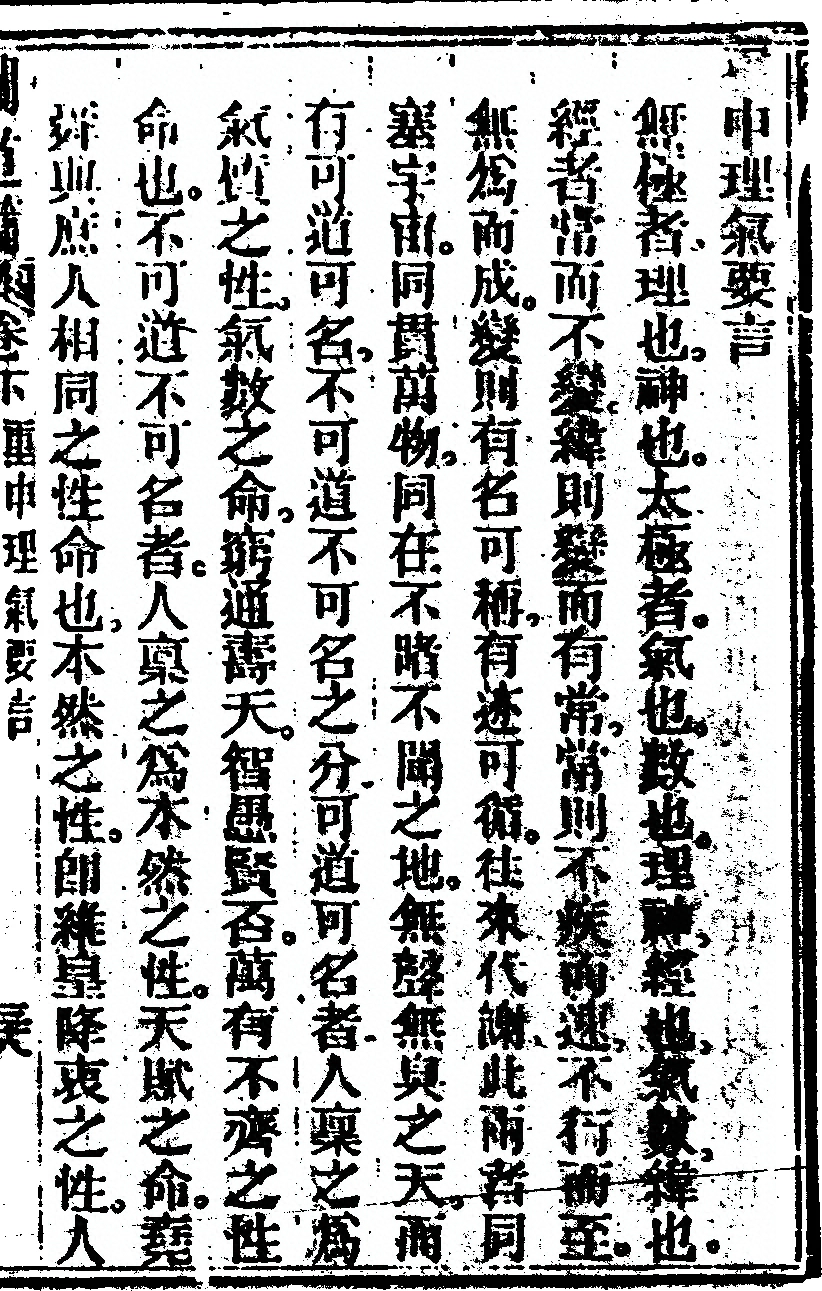 申理氣要言
無極者、理也、神也。太極者。氣也。數也。理神、經也、氣數、緯也。
經者常而不變。緯則變而有常、常則不疾而速、不行而至。
無爲而成。變則有名可稱、有迹可循。往來代謝、此兩者同
塞宇宙。同貫萬物、同在不睹不聞之地。無聲無臭之天、而
有可道可名、不可道不可名之分、可道可名者、人稟之爲
氣質之性、氣數之命、窮通壽夭。智愚賢否。萬有不齊之性
命也。不可道不可名者。人稟之爲本然之性。天賦之命。堯
舜與庶人相同之性命也、本然之性。卽維皇降衷之性。人
卷下 重申理氣要言